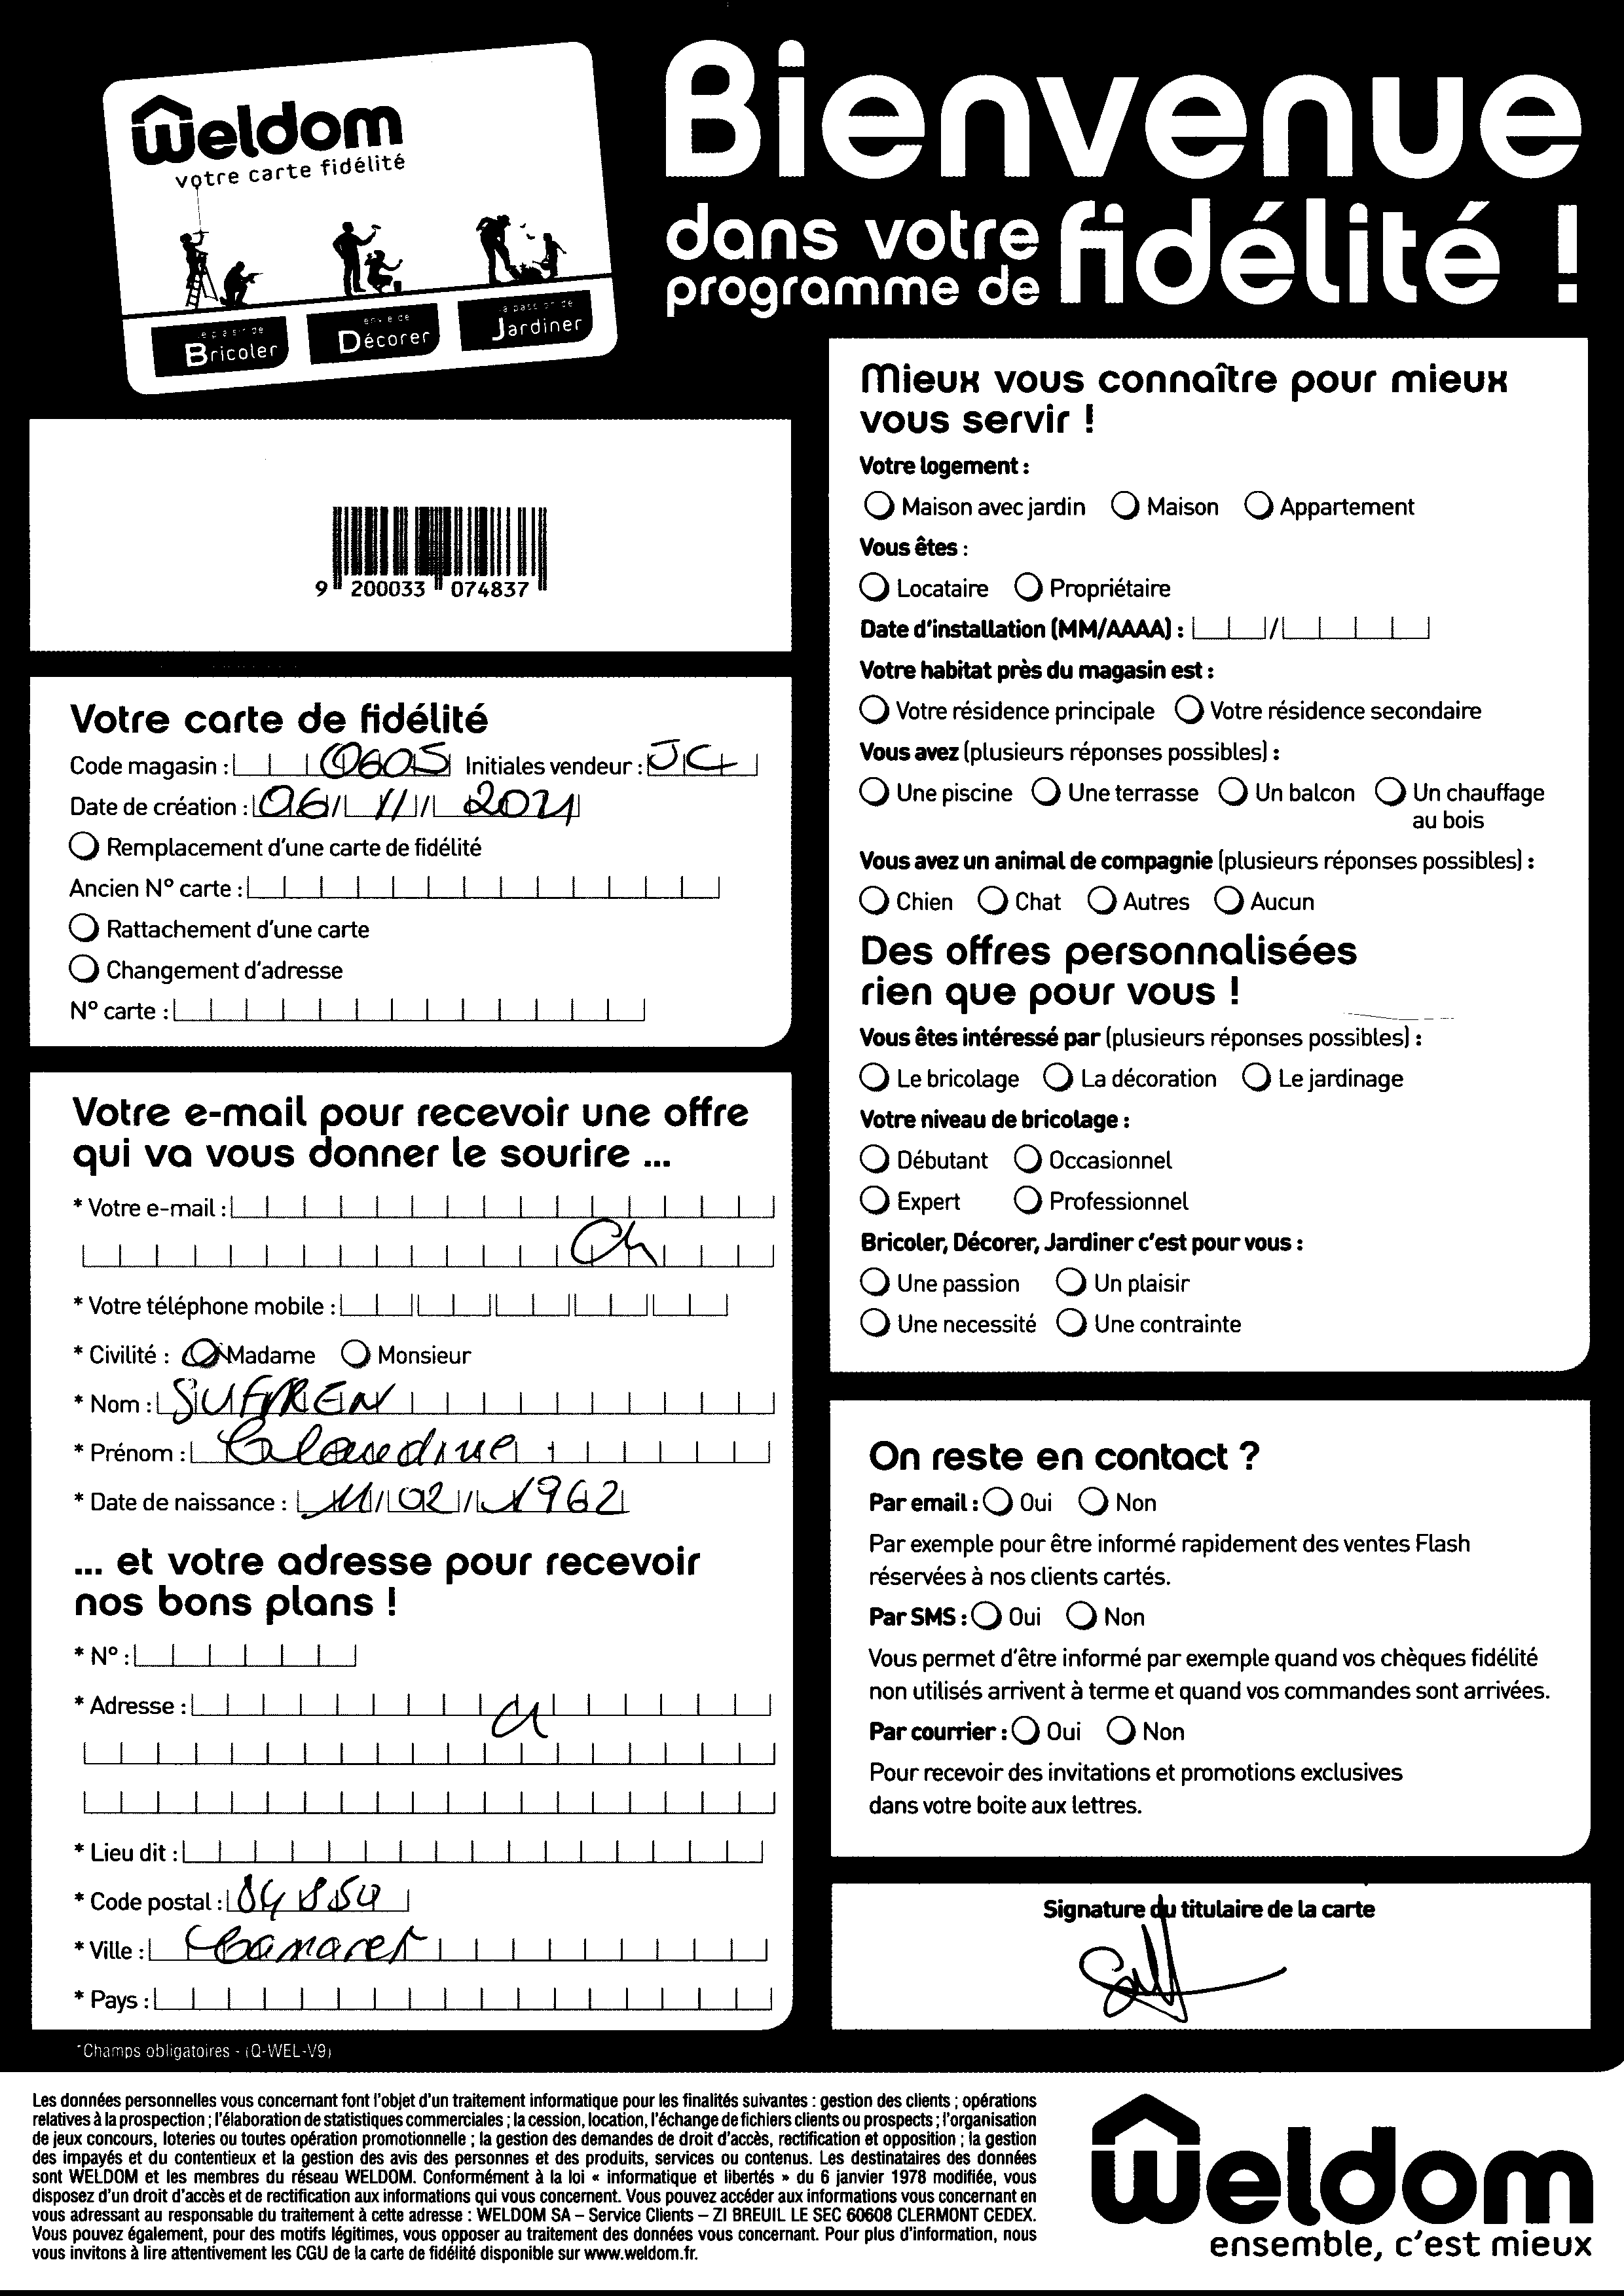 Weldom
votre carte fidélité
le plaisir de
Bricoler
envie de
Décorer
la passion de
Jardiner
Bienvenue
dans votre
programme de fidélité !
9 200033 074837
Votre carte de fidélité
Code magasin : 0605 Initiales vendeur : JCL
Date de création : 06/11/2021
Remplacement d'une carte de fidélité
Ancien N° carte :
Rattachement d'une carte
Changement d'adresse
N° carte :
Votre e-mail pour recevoir une offre
qui va vous donner le sourire ...
* Votre e-mail :
* Votre téléphone mobile :
* Civilité : Madame Monsieur
* Nom : SUFFREN
* Prénom : Claudine
* Date de naissance : 11/02/1962
... et votre adresse pour recevoir
nos bons plans !
* N° :
* Adresse :
* Lieu dit :
* Code postal :
* Ville : Camaret
* Pays :
*Champs obligatoires - (Q-WEL-V9)
Mieux vous connaître pour mieux
vous servir !
Votre logement :
Maison avec jardin Maison Appartement
Vous êtes :
Locataire Propriétaire
Date d'installation (MM/AAAA) : /
Votre habitat près du magasin est :
Votre résidence principale Votre résidence secondaire
Vous avez (plusieurs réponses possibles) :
Une piscine Une terrasse Un balcon Un chauffage
au bois
Vous avez un animal de compagnie (plusieurs réponses possibles) :
Chien Chat Autres Aucun
Des offres personnalisées
rien que pour vous !
Vous êtes intéressé par (plusieurs réponses possibles) :
Le bricolage La décoration Le jardinage
Votre niveau de bricolage :
Débutant Occasionnel
Expert Professionnel
Bricoler, Décorer, Jardiner c'est pour vous :
Une passion Un plaisir
Une necessité Une contrainte
On reste en contact ?
Par email : Oui Non
Par exemple pour être informé rapidement des ventes Flash
réservées à nos clients cartés.
Par SMS : Oui Non
Vous permet d'être informé par exemple quand vos chèques fidélité
non utilisés arrivent à terme et quand vos commandes sont arrivées.
Par courrier : Oui Non
Pour recevoir des invitations et promotions exclusives
dans votre boite aux lettres.
Signature du titulaire de la carte
Les données personnelles vous concernant font l'objet d'un traitement informatique pour les finalités suivantes : gestion des clients ; opérations
relatives à la prospection ; l'élaboration de statistiques commerciales ; la cession, location, l'échange de fichiers clients ou prospects ; l'organisation
de jeux concours, loteries ou toutes opération promotionnelle ; la gestion des demandes de droit d'accès, rectification et opposition ; la gestion
des impayés et du contentieux et la gestion des avis des personnes et des produits, services ou contenus. Les destinataires des données
sont WELDOM et les membres du réseau WELDOM. Conformément à la loi « informatique et libertés » du 6 janvier 1978 modifiée, vous
disposez d'un droit d'accès et de rectification aux informations qui vous concernent. Vous pouvez accéder aux informations vous concernant en
vous adressant au responsable du traitement à cette adresse : WELDOM SA – Service Clients – ZI BREUIL LE SEC 60608 CLERMONT CEDEX.
Vous pouvez également, pour des motifs légitimes, vous opposer au traitement des données vous concernant. Pour plus d'information, nous
vous invitons à lire attentivement les CGU de la carte de fidélité disponible sur www.weldom.fr.
Weldom
ensemble, c'est mieux